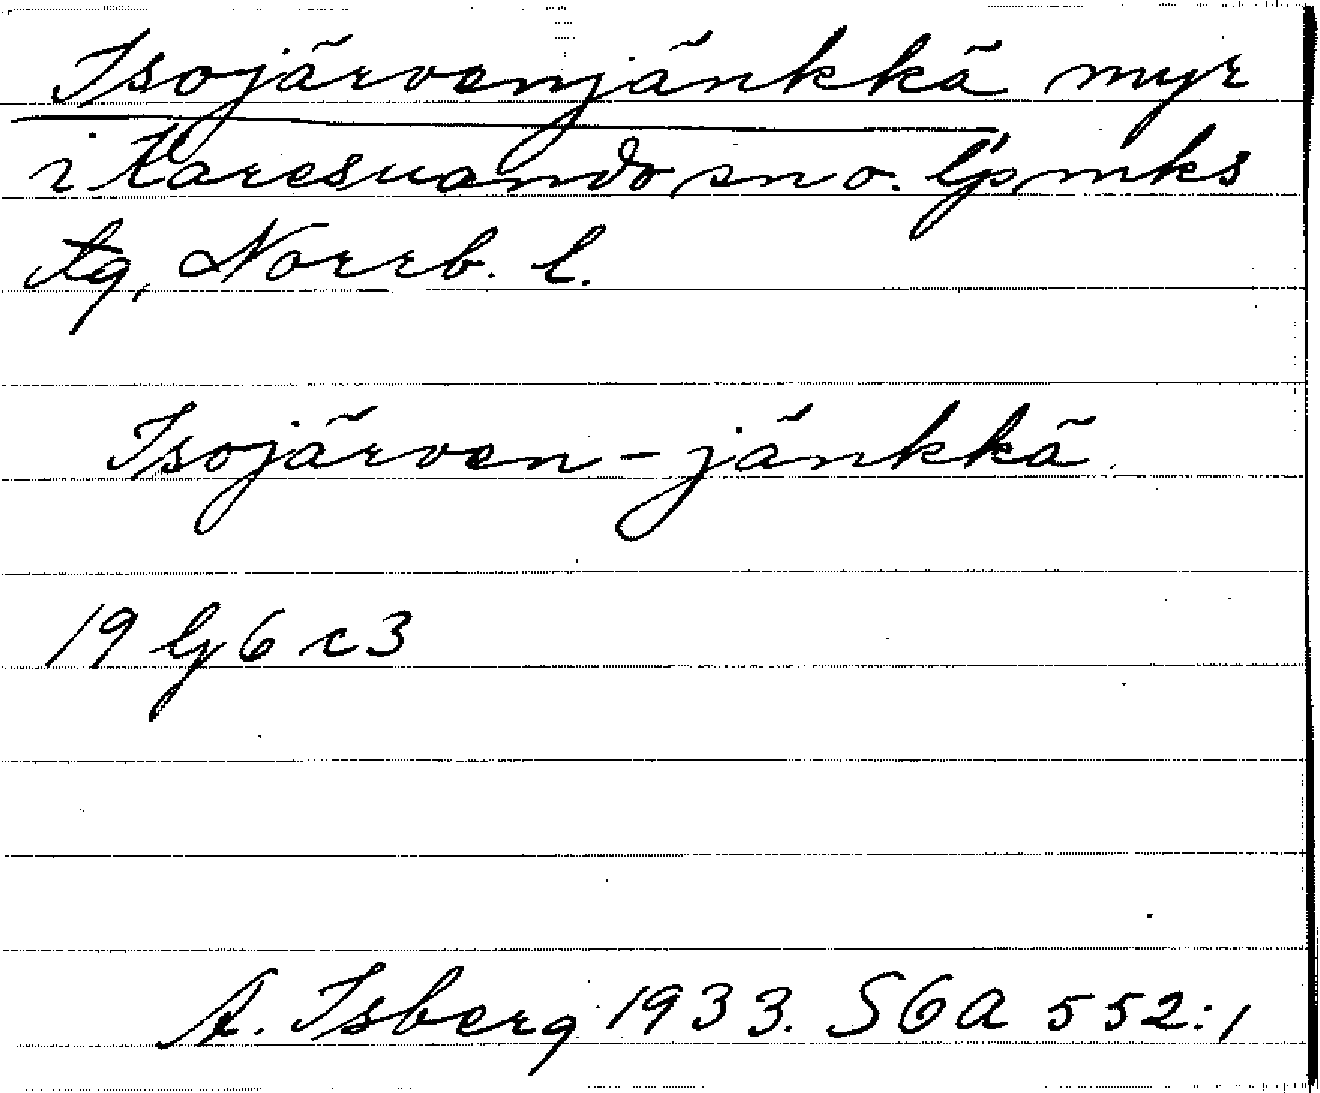 Isojärvenjänkkä myr
i Karesuando sn o. lpmks
tg, Norrb. l.
Isojärven-jänkkä
19 ly 6 c3
A. Isberg 1933. SGA 552:1